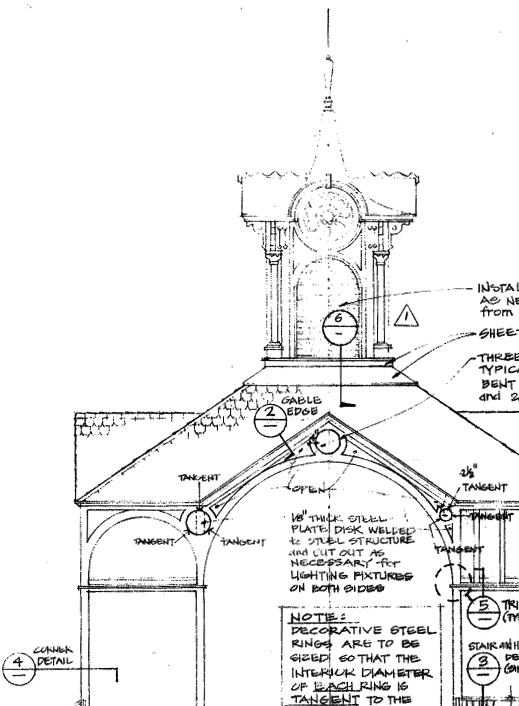 INSTAL
AS NE
from
6
1
SHEE
THREE
TYPICA
BENT
and 2
GABLE
EDGE
2
2½"
TANGENT
TANGENT
OPEN
TANGENT
TANGENT
TANGENT
TANGENT
1/8" THICK STEEL
PLATE DISK WELDED
to STEEL STRUCTURE
and CUT OUT AS
NECESSARY for
LIGHTING FIXTURES
ON BOTH SIDES
NOTE:
DECORATIVE STEEL
RINGS ARE TO BE
SIZED SO THAT THE
INTERIOR DIAMETER
OF EACH RING IS
TANGENT TO THE
5
TRI
(TY
STAIR
DE
3
CORNER
DETAIL
4